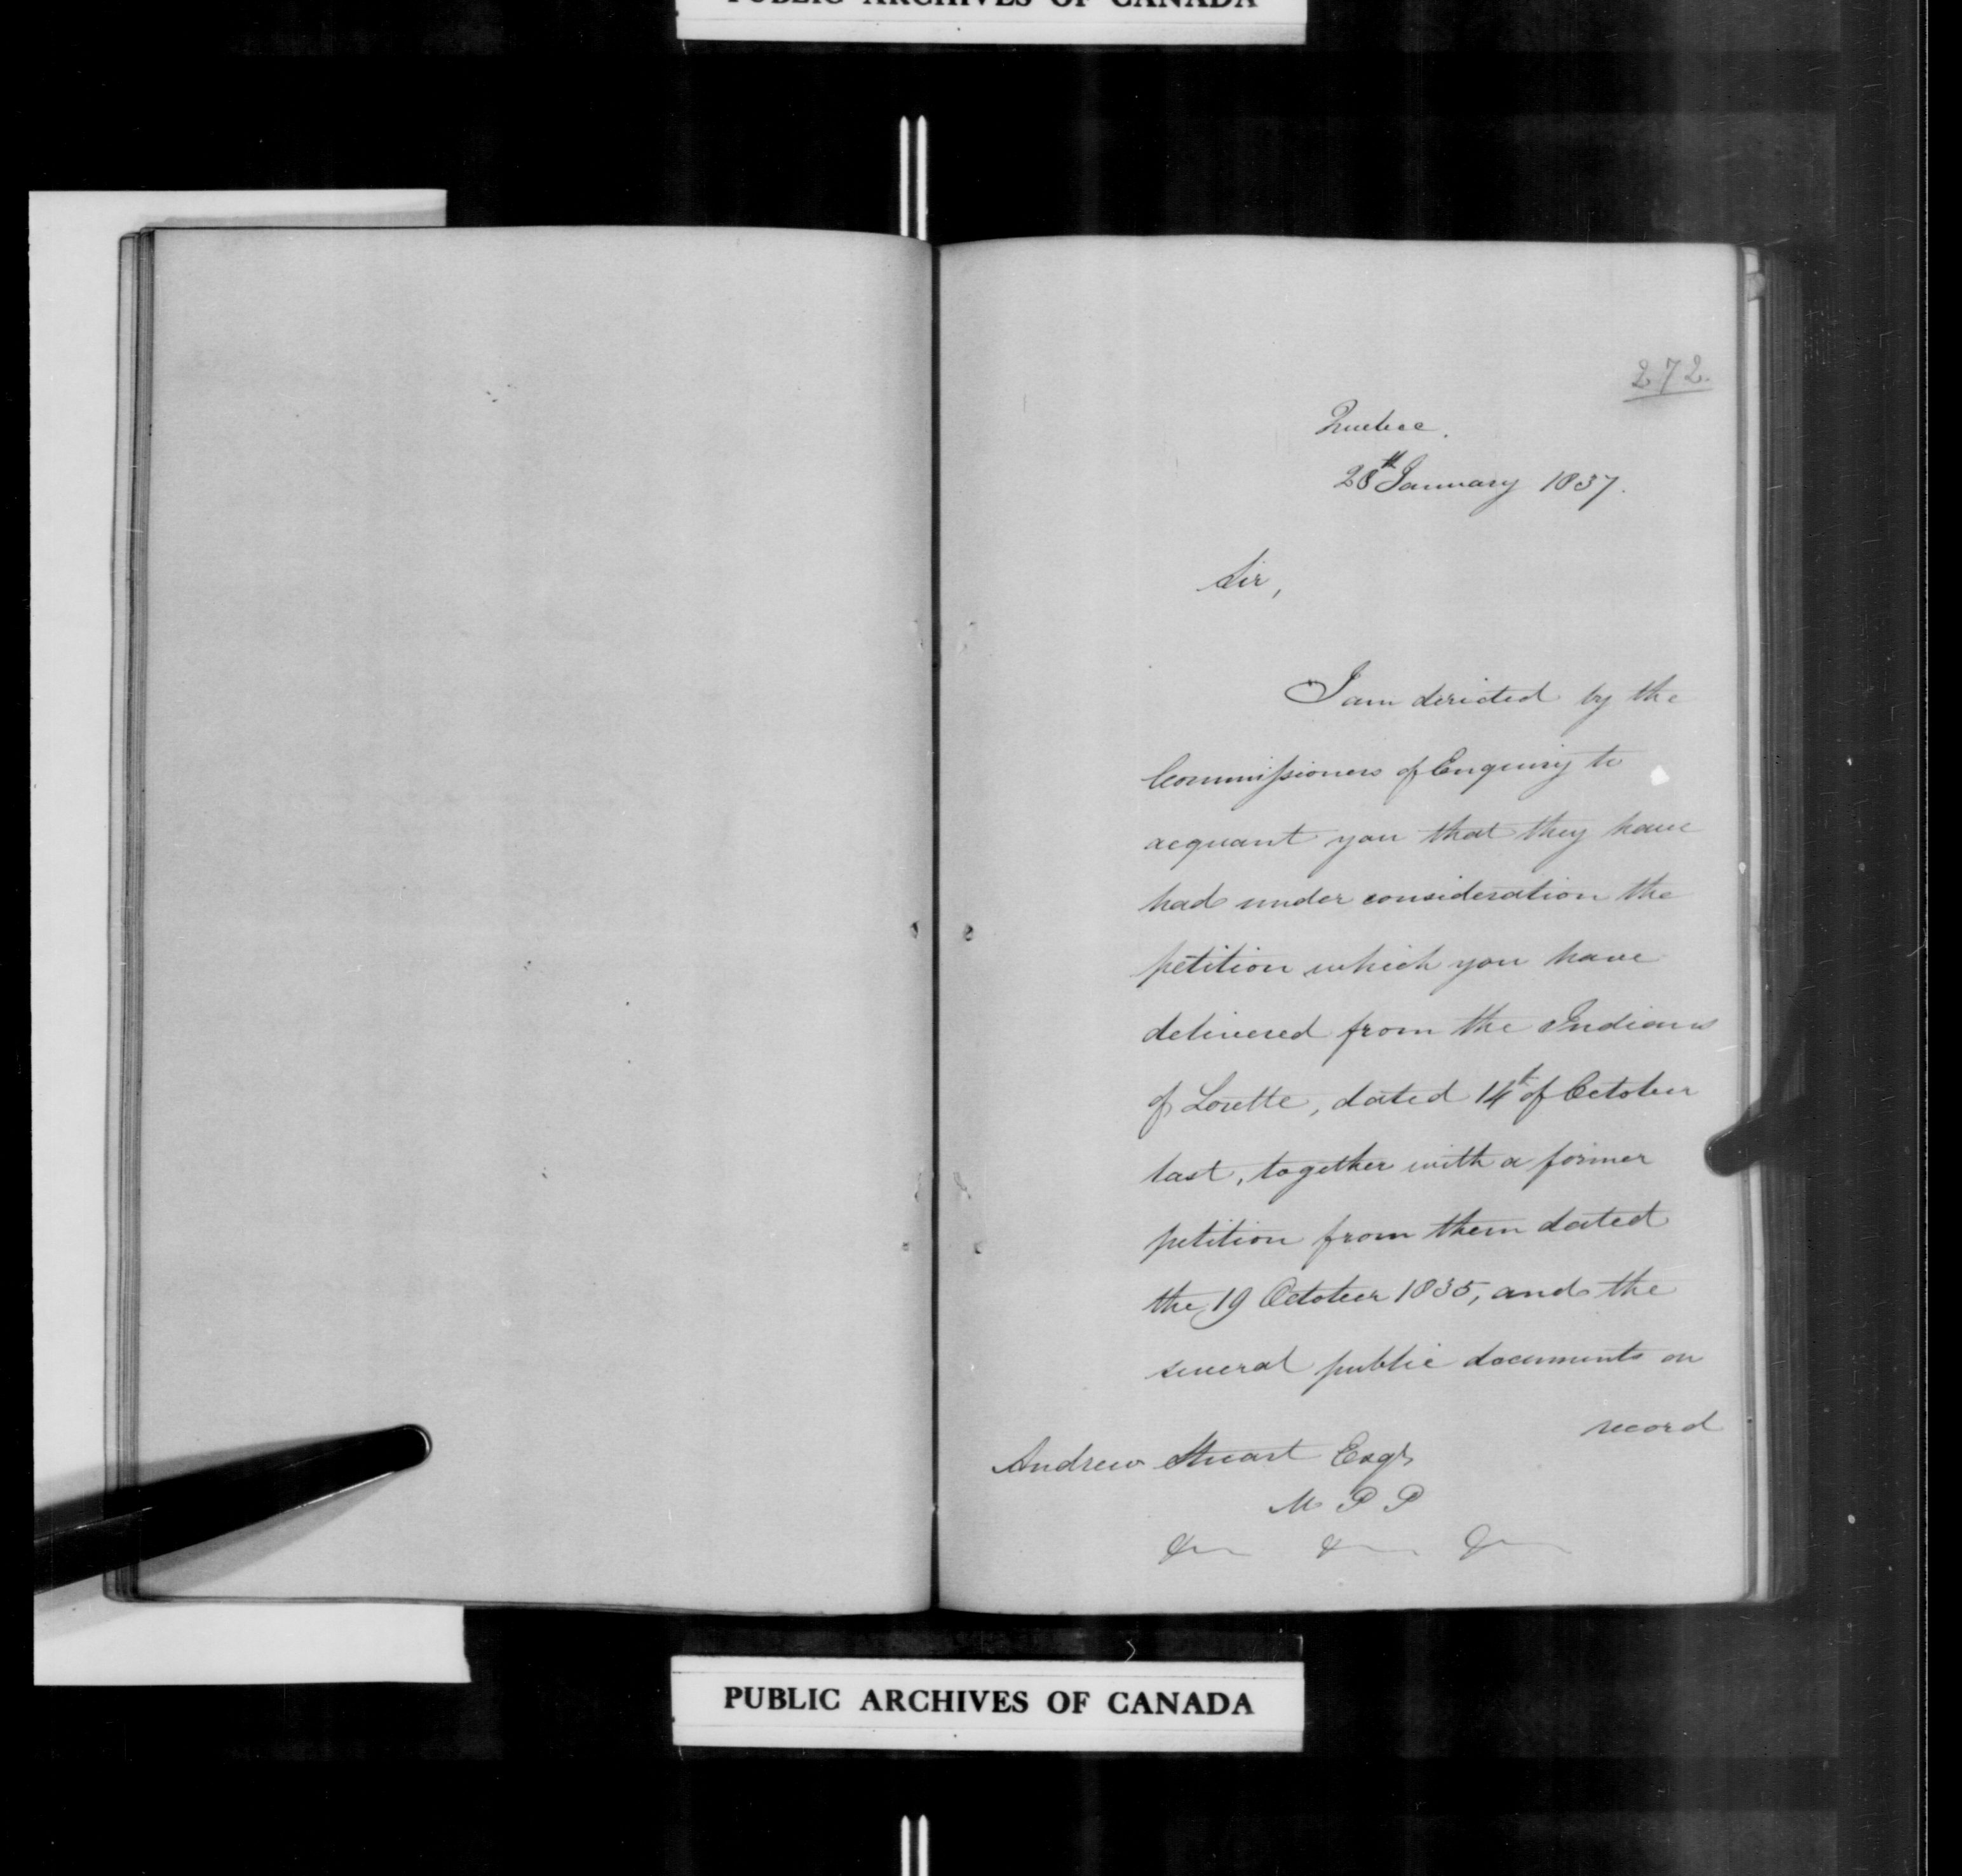 PUBLIC ARCHIVES OF CANADA
272.
Quebec.
28th January 1837.
Sir,
I am directed by the
Commissioners of Enquiry to
acquant you that they have
had under consideration the
petition which you have
delivered from the Indians
of Lorette, dated 14th of October
last, together with a former
petition from them dated
the 19 October 1835, and the
several public documents on
record
Andrew Stuart Esqr
M P P
&c &c &c
PUBLIC ARCHIVES OF CANADA